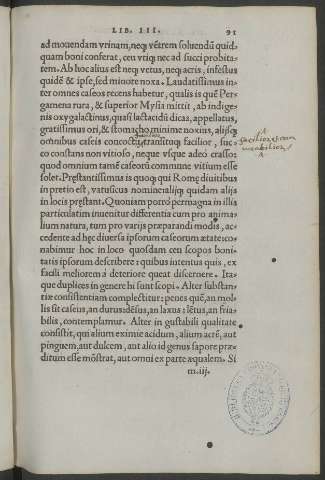 LIB. III.
91
ad mouendam vrinam, neq; vẽtrem soluendũ quid-
quam boni conferat, ceu vtiq; nec ad succi probita-
tem. Ab hoc alius est neq; vetus, neq; acris, infestus
quidẽ & ipse, sed minore noxa. Laudatissimus in-
ter omnes caseos recens habetur, qualis is quẽ Per-
gamena rura, & superior Mysia mittit, ab indige-
nis oxygalactinus, quasi lactacidũ dicas, appellatus,
gratissimus ori, & stomacho minime noxius, aliisq;
omnibus caseis concoctu, transituq; facilior, suc-
co constans non vitioso, neque vsque adeo crasso:
quod omnium tamẽ caseorũ commune vitium esse
solet. Prẹstantissimus is quoq; qui Romẹ diuitibus
in pretio est, vatusicus nominealijq; quidam alijs
in locis prẹstant. Quoniam porro permagna in illis
particulatim inuenitur differentia cum pro anima-
lium natura, tum pro varijs prẹparandi modis, ac-
cedente ad hẹc diuersa ipsorum caseorum ætate: co-
nabimur hoc in loco quosdam ceu scopos boni-
tatis ipsorum describere: quibus intentus quis, ex
facili meliorem à deteriore queat discernere. Ita-
que duplices in genere hi sunt scopi. Alter substan-
tiæ consistentiam complectitur: penes quẽ, an mol-
lis sit caseus, an durus: dẽsus, an laxus: lẽtus, an fria-
bilis, contemplamur. Alter in gustabili qualitate
consistit, qui alium eximie acidum, alium acrẽ, aut
pinguem, aut dulcem, aut alio id genus sapore præ-
ditum esse mõstrat, aut omni ex parte æqualem. Si
m.iij.